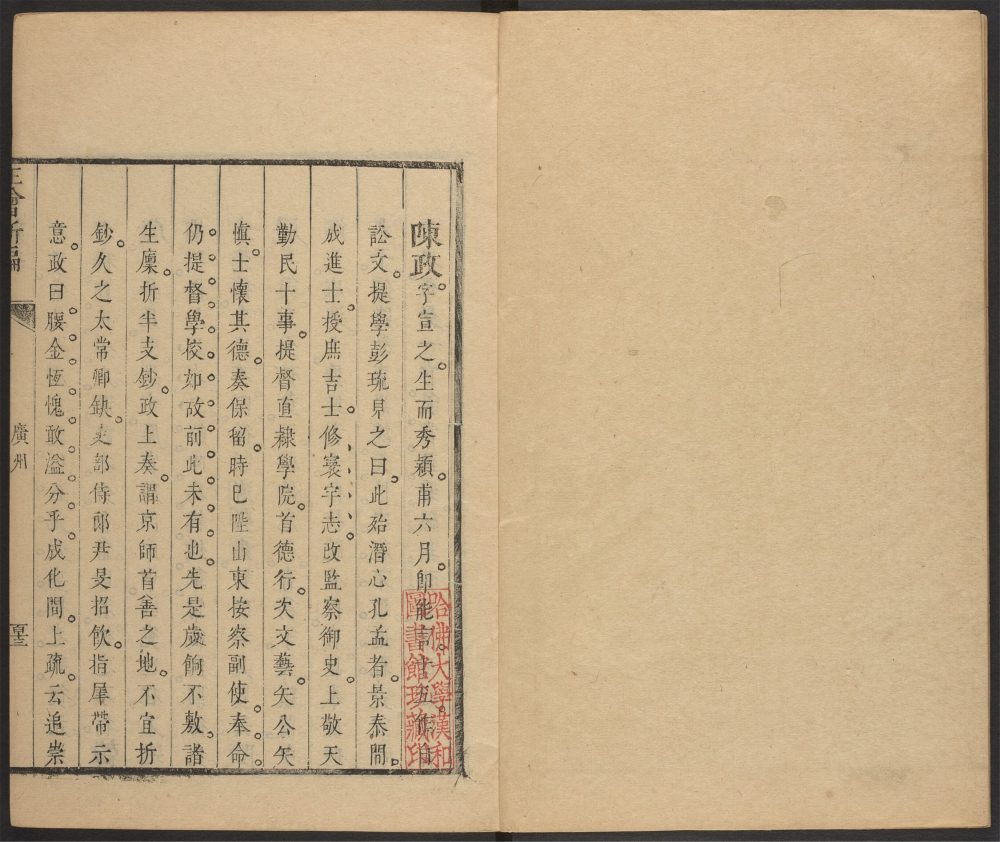 陳政字宣之生而秀穎甫六月即能言十五作自
訟文提學彭琉見之曰此殆潛心孔孟者景泰間
成進士授庶吉士修寰宇志改監察御史上敬天
勤民十事提督直隸學院首德行次文藝矢公矢
慎士懷其德奏保留時巳陞山東按察副使奉命
仍提督學校如故前此未有也先是歲餉不敷諸
生廩折半支鈔政上奏謂京師首善之地不宜折
鈔久之太常卿缺吏部侍郎尹旻招飲指犀帶示
意政曰腰金恆愧敢溢分乎成化間上疏云追崇
廣州
哈佛大學漢和
圖書館珍藏印